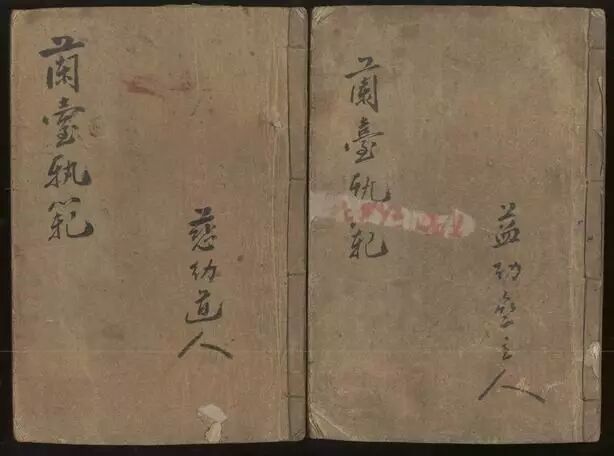 蘭臺軌範
慈幼道人
蘭臺軌範
益幼堂主人